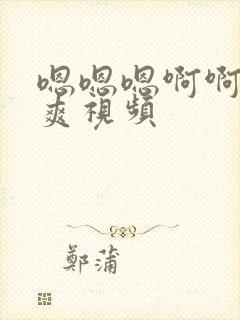 嗯嗯嗯啊啊
爽視頻
鄭蒲